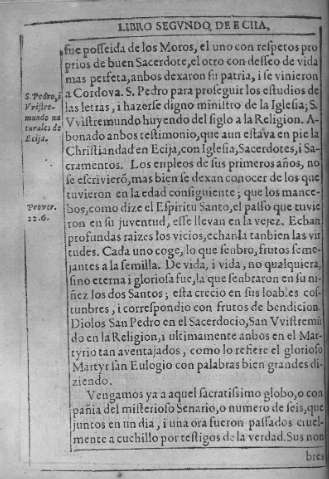 LIBRO SEGVNDO DE ECIIA,
fue posseida de los Moros, el uno con respetos pro
prios de buen Sacerdote, el otro con desseo de vida
mas perfeta, anbos dexaron su patria, i se vinieron
S. Pedro, i
Vvistre-
mundo na
turales de
Ecija.
a Cordova. S. Pedro para proseguir los estudios de
las letras, i hazerse digno ministro de la Iglesia; S.
Vvistremundo huyendo del siglo a la Religion. A-
bonado anbos testimonio, que aun estava en pie la
Christiandad en Ecija, con Iglesia, Sacerdotes, i Sa-
cramentos. Los enpleos de sus primeros años, no
se escrivierō, mas bien se dexan conocer de los que
tuvieron en la edad consiguiente; que los mance-
Prover.
22.6.
bos, como dize el Espiritu Santo, el passo que tuvie
ron en su juventud, esse llevan en la vejez. Echan
profundas raizes los vicios, echanla tanbien las vir
tudes. Cada uno coge, lo que senbro, frutos seme-
jantes a la semilla. De vida, i vida, no qualquiera,
sino eterna i gloriosa fue, la que senbraron en su ni-
ñez los dos Santos; esta crecio en sus loables cos-
tunbres, i correspondio con frutos de bendicion.
Diolos San Pedro en el Sacerdocio, San Vvistremū
do en la Religion, i ultimamente anbos en el Mar-
tyrio tan aventajados, como lo refiere el glorioso
Martyr san Eulogio con palabras bien grandes di-
ziendo.
Vengamos ya a aquel sacratissimo globo, o con
pañia del misterioso Senario, o numero de seis, que
juntos en un dia, i una ora fueron passados cruel-
mente a cuchillo por testigos de la verdad. Sus non
bres